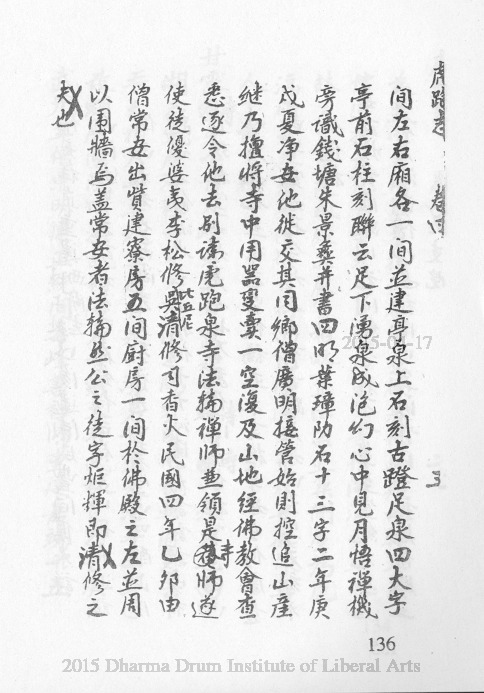 虎跑志 卷四
間左右廂各一間並建亭泉上石刻古蹬足泉四大字
亭前石柱刻聯云足下湧泉成泡幻心中見月悟禪機
旁識錢塘朱景彝并書四明葉璋防石十三字二年庚
戊夏净安他徙交其同鄉僧廣明接管始則控追山產
继乃擅將寺中用器變賣一空復及山地經佛教會查
悉逐令他去别請虎跑泉寺法輪禪師兼領是寺師遂
使徒優婆夷李松修比丘尼吳清修司香火民國四年乙卯由
僧常安出貲建寮房五間廚房一間於佛殿之左並周
以围牆焉盖常安者法輪然公之徒字炬輝即清修之
夫也
136
2015-01-17
2015 Dharma Drum Institute of Liberal Arts